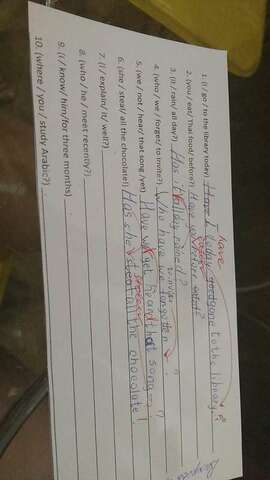 1. (I / go / to the library today) Have I today gone to the library?
2. (you / eat / Thai food / before?) Have you
3. (it / rain / all day?) Has it all day rained?
4. (who / we / forget / to invite?) Who have we forgotten to invite
5. (we / not / hear / that song / yet) Have we yet heard that song
6. (she / steal / all the chocolate!) Has she all the chocolate!
7. (I / explain / it / well?)
8. (who / he / meet recently?)
9. (I / know / him / for three months)
10. (where / you / study Arabic?)